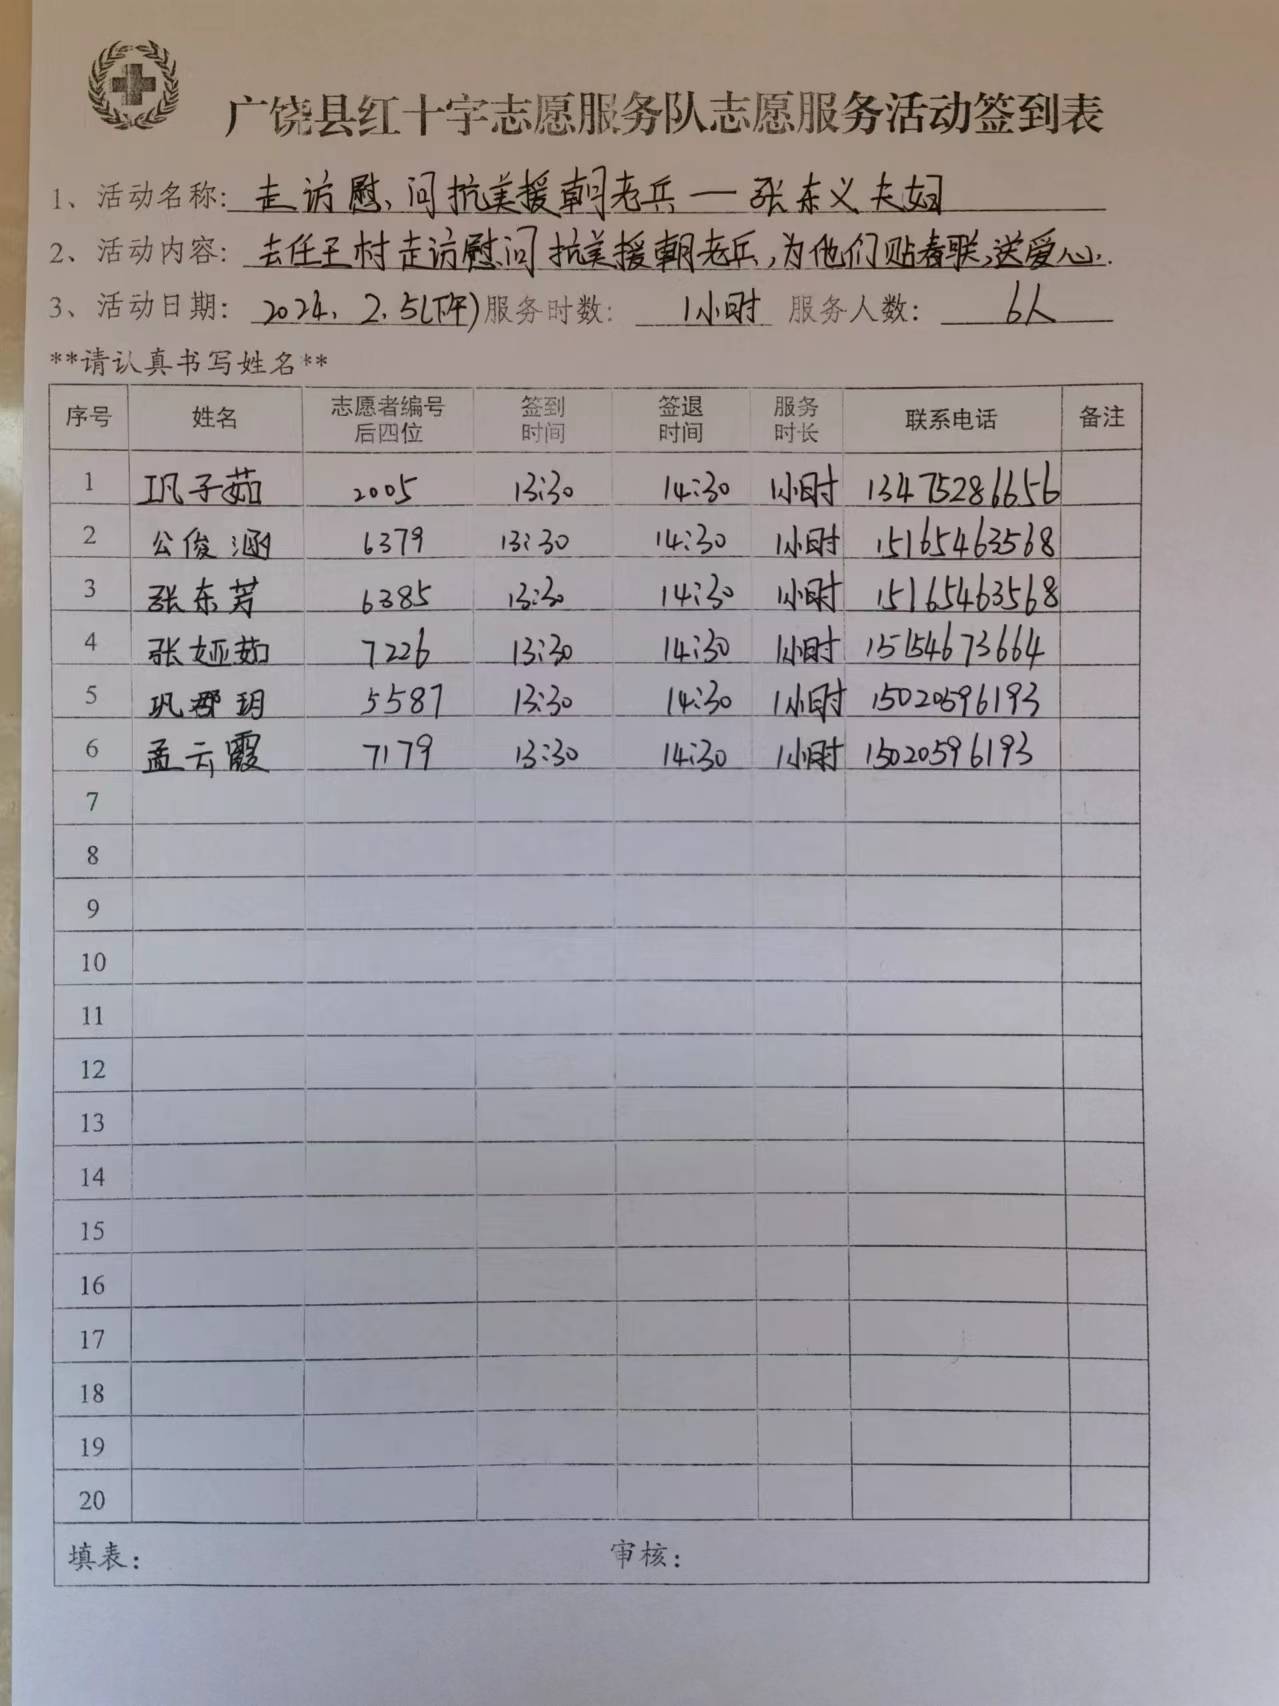 广饶县红十字志愿服务队志愿服务活动签到表
1、活动名称: 走访慰问抗美援朝老兵一张东义夫妇
2、活动内容: 去任王村走访慰问抗美援朝老兵,为他们贴春联,送爱心.
3、活动日期: 2024.2.5(下午) 服务时数: 1小时 服务人数: 6人
**请认真书写姓名**
序号 姓名 志愿者编号后四位 签到时间 签退时间 服务时长 联系电话 备注
1 巩子茹 2005 13:30 14:30 1小时 13475286656
2 公俊涵 6379 13:30 14:30 1小时 15165463568
3 张东芳 6385 13:30 14:30 1小时 15165463568
4 张娅茹 7226 13:30 14:30 1小时 15154673664
5 巩郡玥 5587 13:30 14:30 1小时 15020596193
6 孟云霞 7179 13:30 14:30 1小时 15020596193
7
8
9
10
11
12
13
14
15
16
17
18
19
20
填表: 审核: